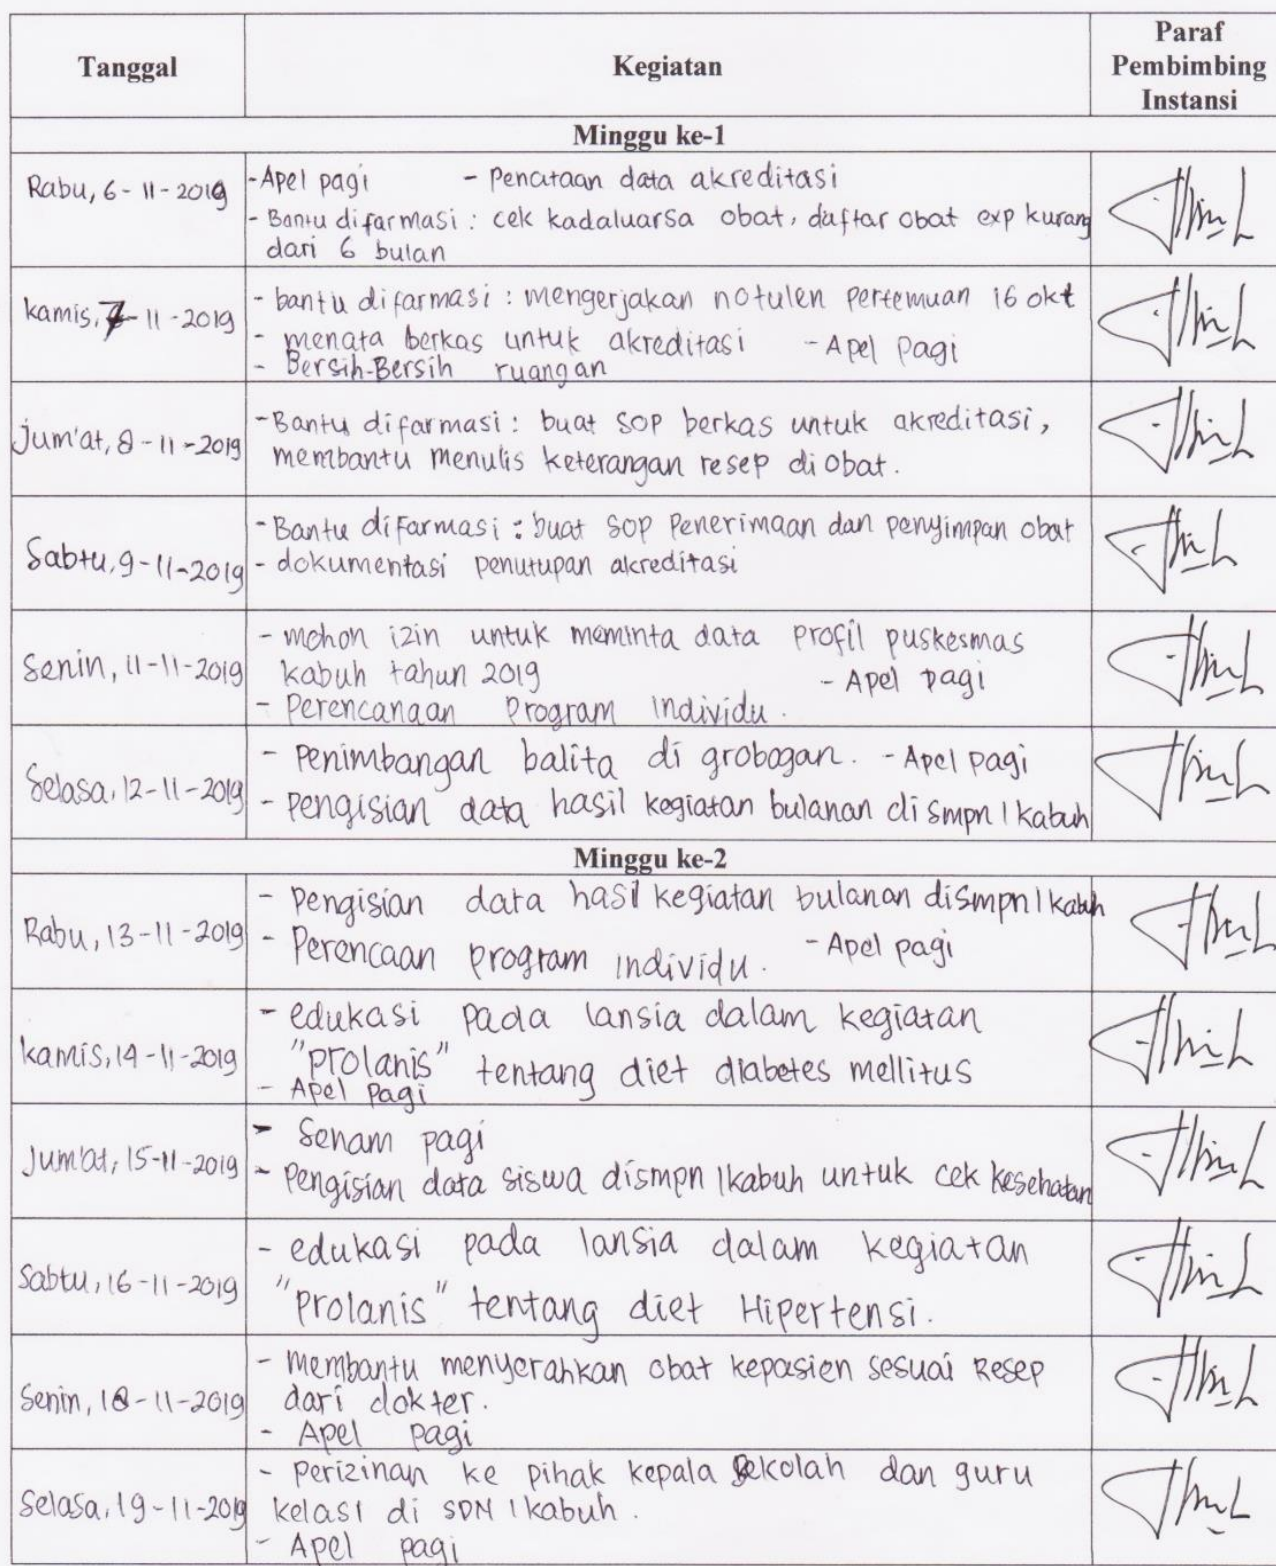 Tanggal
Kegiatan
Paraf
Pembimbing
Instansi
Minggu ke-1
Rabu, 6-11-2019
- Apel pagi - Penataan data akreditasi
- Bantu difarmasi : cek kadaluarsa obat, daftar obat exp kurang
dari 6 bulan
kamis, 7-11-2019
- bantu difarmasi : mengerjakan notulen pertemuan 16 okt
- menata berkas untuk akreditasi - Apel pagi
- Bersih-Bersih ruangan
Jum'at, 8-11-2019
- Bantu difarmasi : buat SOP berkas untuk akreditasi,
membantu menulis keterangan resep diobat.
Sabtu, 9-11-2019
- Bantu difarmasi : buat SOP Penerimaan dan penyimpan obat
- dokumentasi penutupan akreditasi
Senin, 11-11-2019
- mohon izin untuk meminta data profil puskesmas
kabuh tahun 2019 - Apel pagi
- Perencanaan Program Individu.
Selasa, 12-11-2019
- Penimbangan balita di grobogan. - Apel pagi
- Pengisian data hasil kegiatan bulanan di smpn 1 kabuh
Minggu ke-2
Rabu, 13-11-2019
- Pengisian data hasil kegiatan bulanan dismpn 1 kabuh
- Perencaan program individu. - Apel pagi
kamis, 14-11-2019
- edukasi pada lansia dalam kegiatan
"prolanis" tentang diet diabetes mellitus
- Apel pagi
Jum'at, 15-11-2019
- Senam pagi
- Pengisian data siswa dismpn 1 kabuh untuk cek kesehatan
Sabtu, 16-11-2019
- edukasi pada lansia dalam kegiatan
"Prolanis" tentang diet Hipertensi.
Senin, 18-11-2019
- Membantu menyerahkan obat kepasien sesuai Resep
dari dokter.
- Apel pagi
Selasa, 19-11-2019
- perizinan ke pihak kepala Sekolah dan guru
kelas 1 di SDN 1 kabuh.
- Apel pagi